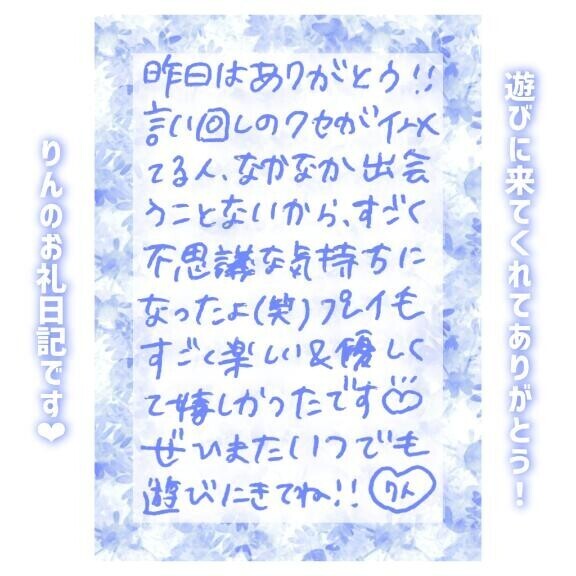 遊びに来てくれてありがとう！
昨日はありがとう!!
言い回しのクセがイ以
てる人、なかなか出会
うことないから、すごく
不思議な気持ちに
なったよ(笑)プレイも
すごく楽しい&優しく
て嬉しかったです
ぜひまたいつでも
遊びにきてね!!
りん
りんのお礼日記です❤